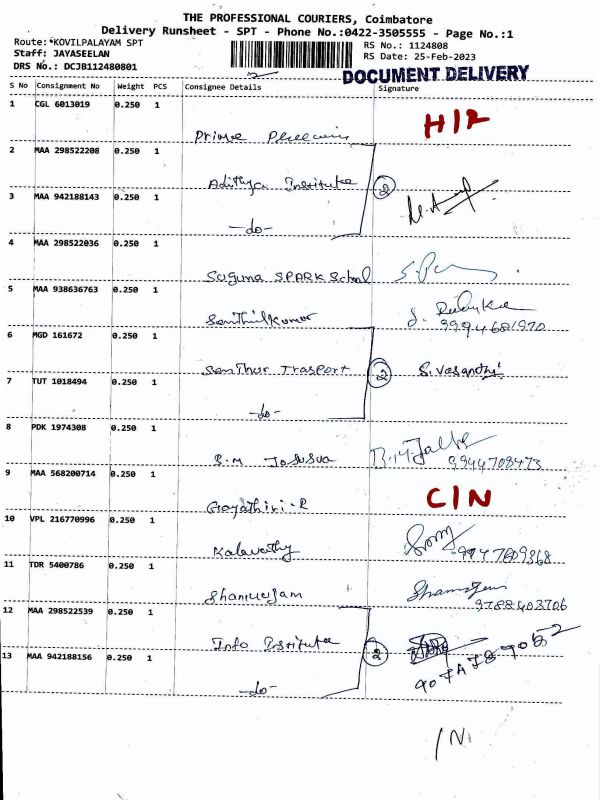 THE PROFESSIONAL COURIERS, Coimbatore
Delivery Runsheet - SPT - Phone No.:0422-3505555 - Page No.:1
Route: KOVILPALAYAM SPT
RS No.: 1124808
Staff: JAYASEELAN
RS Date: 25-Feb-2023
DRS No.: DCJB112480801
DOCUMENT DELIVERY
S No Consignment No Weight PCS Consignee Details Signature
1 CGL 6013019 0.250 1
H/R
Prime
2 MAA 298522208 0.250 1
Adithya Institute 2
3 MAA 942188143 0.250 1
-do-
4 MAA 298522036 0.250 1
Suguna SPARK School
5 MAA 938636763 0.250 1
Senthilkumar
9994681970
6 MGD 161672 0.250 1
Senthur Trasport 2 S. Vasanthi
7 TUT 1018494 0.250 1
-do-
8 PDK 1974308 0.250 1
B.M
9944708473
9 MAA 568200714 0.250 1
Gayathiri-R C/N
10 VPL 216770996 0.250 1
Kalavathy 9947609368
11 TDR 5400786 0.250 1
9788403706
12 MAA 298522539 0.250 1
Info Institute 2
13 MAA 942188156 0.250 1
-do-